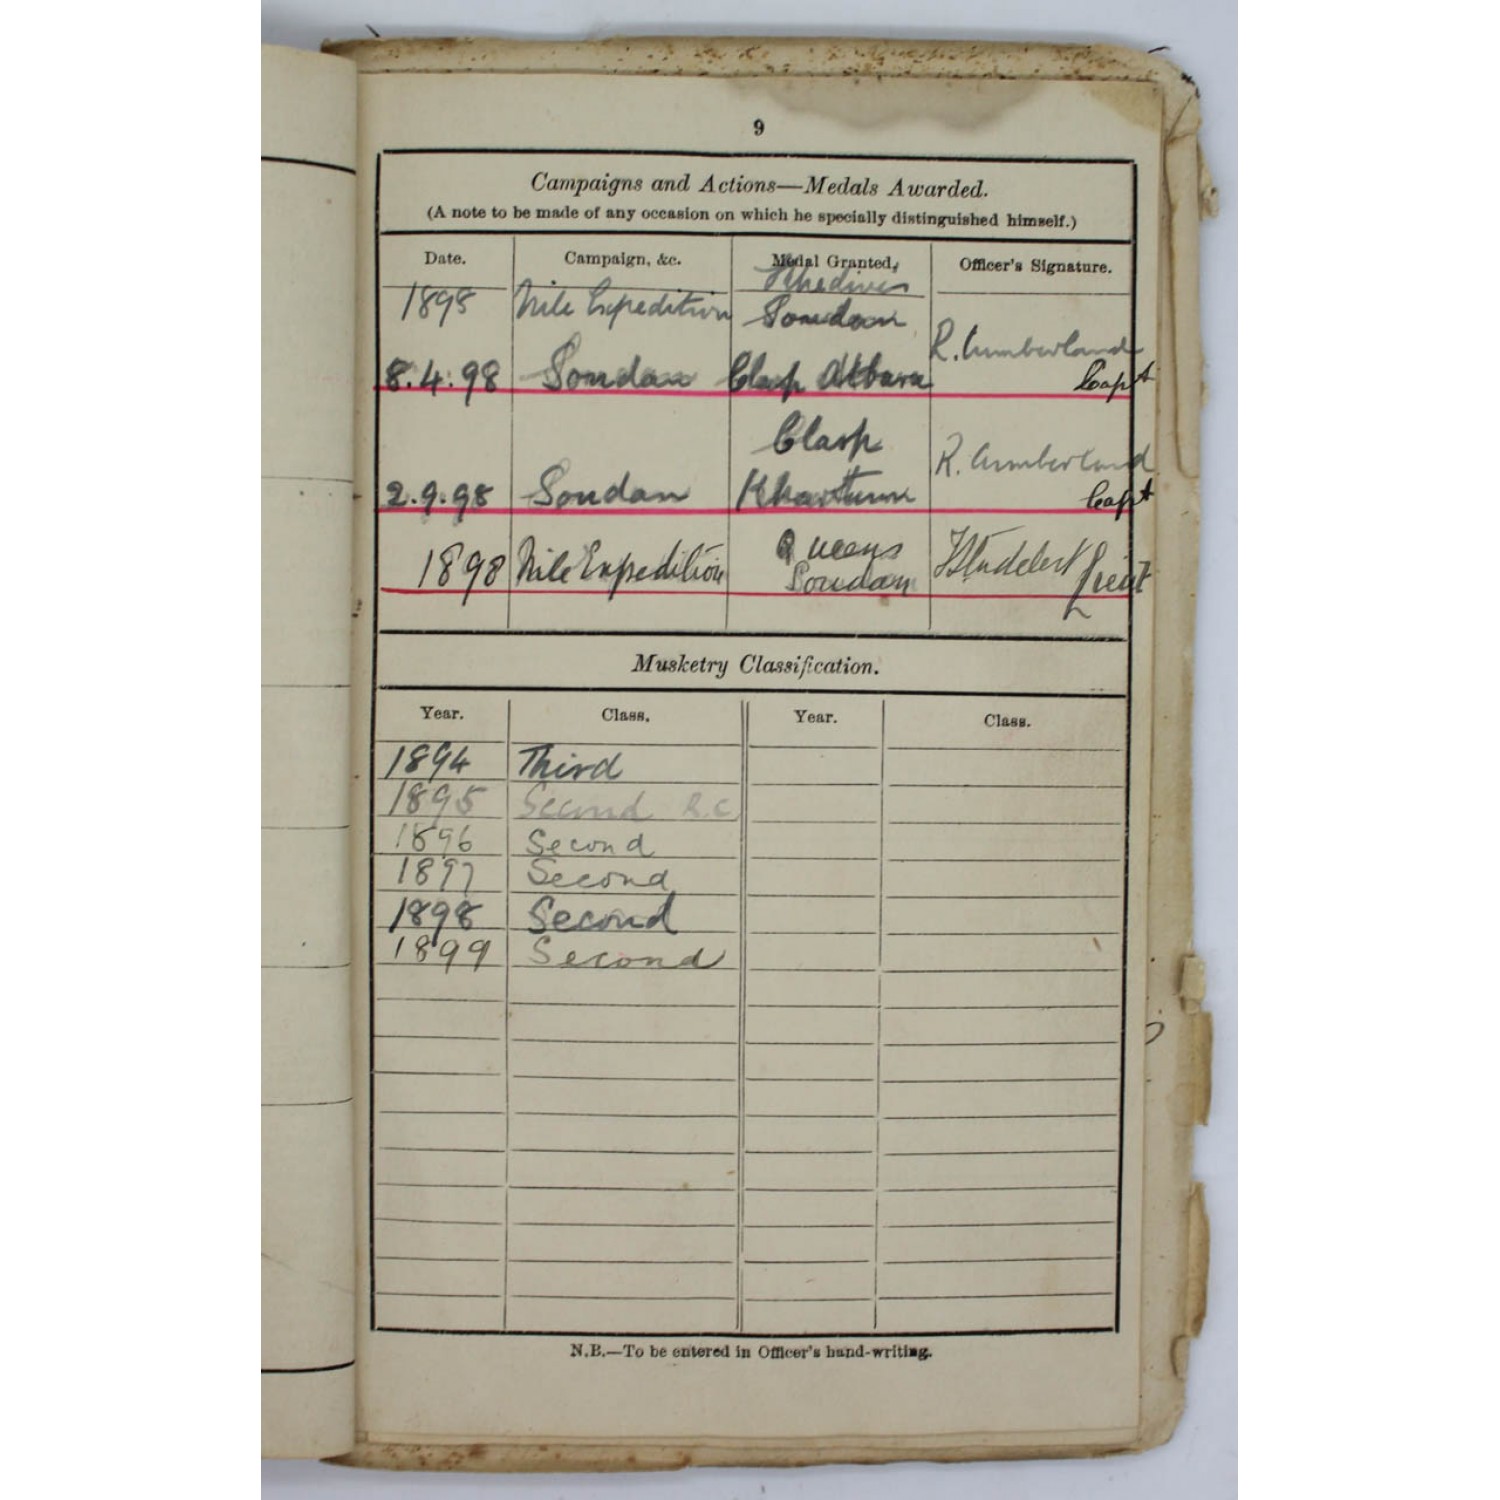 9
Campaigns and Actions—Medals Awarded.
(A note to be made of any occasion on which he specially distinguished himself.)
Date. Campaign, &c. Medal Granted, Officer's Signature.
1898 Nile Expedition Khedives
Soudan
8.4.98 Soudan Clasp Atbara R. Cumberland
Capt
Clasp
2.9.98 Soudan Khartum R. Cumberland
Capt
1898 Nile Expedition Queens
Soudan Lieut
Musketry Classification.
Year. Class. Year. Class.
1894 Third
1895 Second R.C.
1896 Second
1897 Second
1898 Second
1899 Second
N.B.—To be entered in Officer's hand-writing.